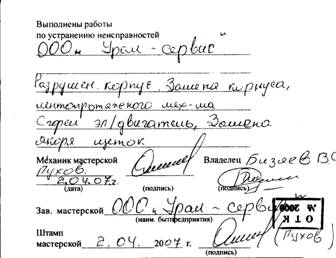 Выполнены работы
по устранению неисправностей
ООО „Урал - сервис"
Разрушен. корпус. Замена корпуса,
лентопротяжного мех-ма
Сгорел эл/двигатель, Замена
якоря щеток
Механик мастерской Владелец Бизяев ВС
Пухов.
2.04.07г.
(дата) (подпись) (подпись)
Зав. мастерской ООО „Урал - сервис"
(наим. быт.предприятия)
ОТК
№ 200
Штамп
мастерской 2. 04. 2007 г. (Пухов)
(подпись)